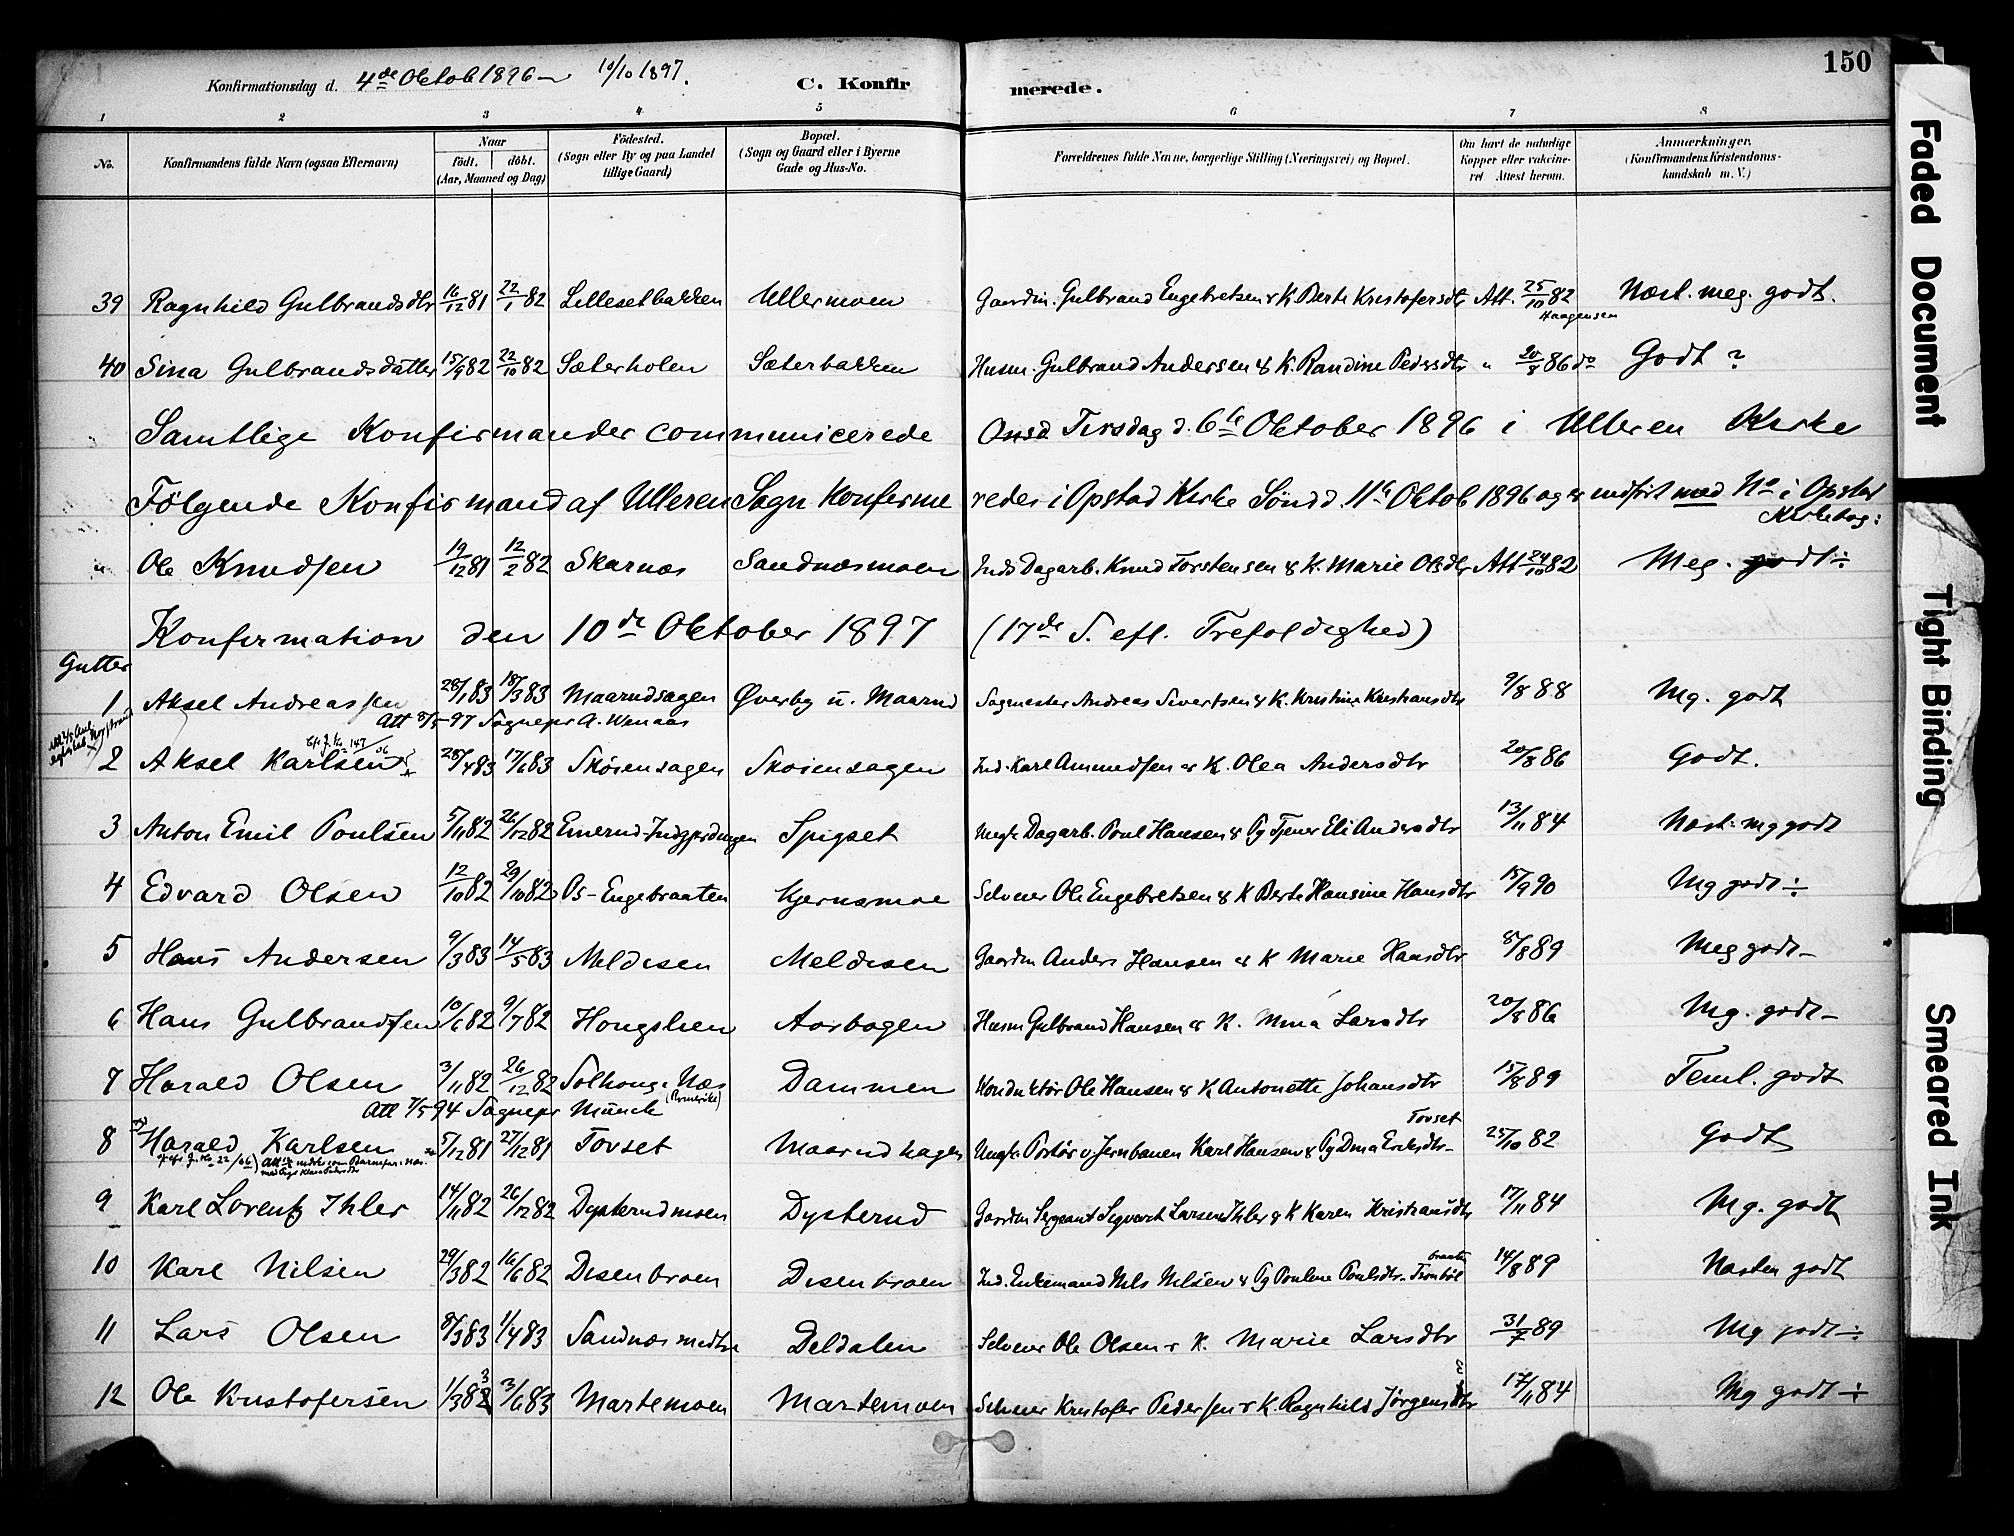 150
Konfirmationsdag d. 4de Oktob 1896 – 10/10 1897.
C. Konfirmerede.
1 2 3 4 5 6 7 8
No. Konfirmandens fulde Navn (ogsaa Efternavn) Naar født. døbt. (Aar, Maaned og Dag) Fødested. (Sogn eller By og paa Landet tillige Gaard) Bopæl. (Sogn og Gaard eller i Byerne Gade og Hus-No. Forældrenes fulde Navne, borgerlige Stilling (Næringsvei) og Bopæl. Om havt de naturlige Kopper eller vakcineret Attest herom. Anmærkninger. (Konfirmandens Kristendomskundskab m. V.)
39 Ragnhild Gulbrandsdtr 16/12 81 22/1 82 Lillesetbakken Ullermoen Gaardm. Gulbrand Engebretsen & K. Berte Kristofersdtr Att. 25/10 82 Næst. meg. godt.
Haagensen
40 Sina Gulbrandsdatter 15/9 82 22/10 82 Sæterholen Sæterbakken Husm. Gulbrand Andersen & K. Randine Pedersdtr " 20/8 86 do Godt ?
Samtlige Konfirmander communicerede Onsd Tirsdag d. 6te Oktober 1896 i Ulleren Kirke
Følgende Konfirmand af Ulleren Sogn konfirmeredes i Opstad Kirke Søndd. 11te Oktob 1896 og er indført med No i Opstad
Kirkebog:
" Ole Knudsen 19/12 81 12/2 82 Skarnæs Sandnæsmoen Inds Dagarb. Knud Torstensen & K. Marie Olsdtr Att 24/10 82 Meg. godt ÷
Konfirmation den 10de Oktober 1897 (17de S. eft. Trefoldighed)
Gutter
1 Aksel Andreassen 28/1 83 18/3 83 Maarudsagen Øverby u. Maarud Sagmester Andreas Sivertsen & K. Kristine Kristiansdtr 9/8 88 Mg. godt
Att 8/5 97 Sognepr A. Wenaas
Cfr J. No 147/06
2 Aksel Karlsen 28/4 83 17/6 83 Skøiensagen Skoiensagen Ind. Karl Ammundsen & K. Olea Andersdtr 20/8 86 Godt.
3 Anton Emil Poulsen 5/11 82 26/12 82 Emerud-Indgjerdingen Spigset Ungk. Dagarb. Poul Hansen & Pg Tjener Eli Andersdtr 13/11 84 Næst. mg godt
4 Edvard Olsen 12/10 82 29/10 82 Os-Engebraaten Kjernsmoe Selveier Ole Engebretsen & K Berte Hansine Hansdtr 15/9 90 Mg godt ÷
5 Hans Andersen 9/3 83 14/5 83 Meldisen Meldisen Gaardm Anders Hansen & K Marie Hansdtr 8/8 89 Meg godt –
6 Hans Gulbrandsen 10/6 82 9/7 82 Hongslien Aasbogen Husm Gulbrand Hansen & K. Mina Larsdtr 20/8 86 Mg. godt –
7 Harald Olsen 3/11 82 26/12 82 Solhoug i Næs Dammen Konduktør Ole Hansen & K Antonette Johansdtr 15/8 89 Teml. godt
(Romerike)
Att 7/5 94 Sognepr Münch
Tovset
8 Harald Karlsen 5/12 81 27/12 81 Tovset Maarudhagen Ungk. Portør v. Jernbanen Karl Hansen & Pg Dina Eriksdtr – 25/10 82 Godt
9 Karl Lorentz Ihler 14/11 82 26/12 82 Dysterudmoen Dysterud Gaardm Sergeant Sigvart Larsen Ihler & K Karen Kristiansdtr 17/11 84 Mg. godt
braaten
10 Karl Nilsen 29/3 82 16/6 82 Disenbroen Disenbroen Ind. Enkemand Nils Nilsen & Pg Pouline Poulsdtr. Trontøl 14/8 89 Næsten godt
11 Lars Olsen 8/3 83 1/4 83 Deldalen Selveier Ole Olsen & K. Marie Larsdtr 31/7 89 Mg godt ÷
12 Ole Kristofersen 1/3 83 3/6 83 Martemoen Martemoen Selveier Kristofer Pedersen & K. Ragnhild Jørgensdtr 17/11 84 Mg godt ÷
Faded Document
Tight Binding
Smeared Ink